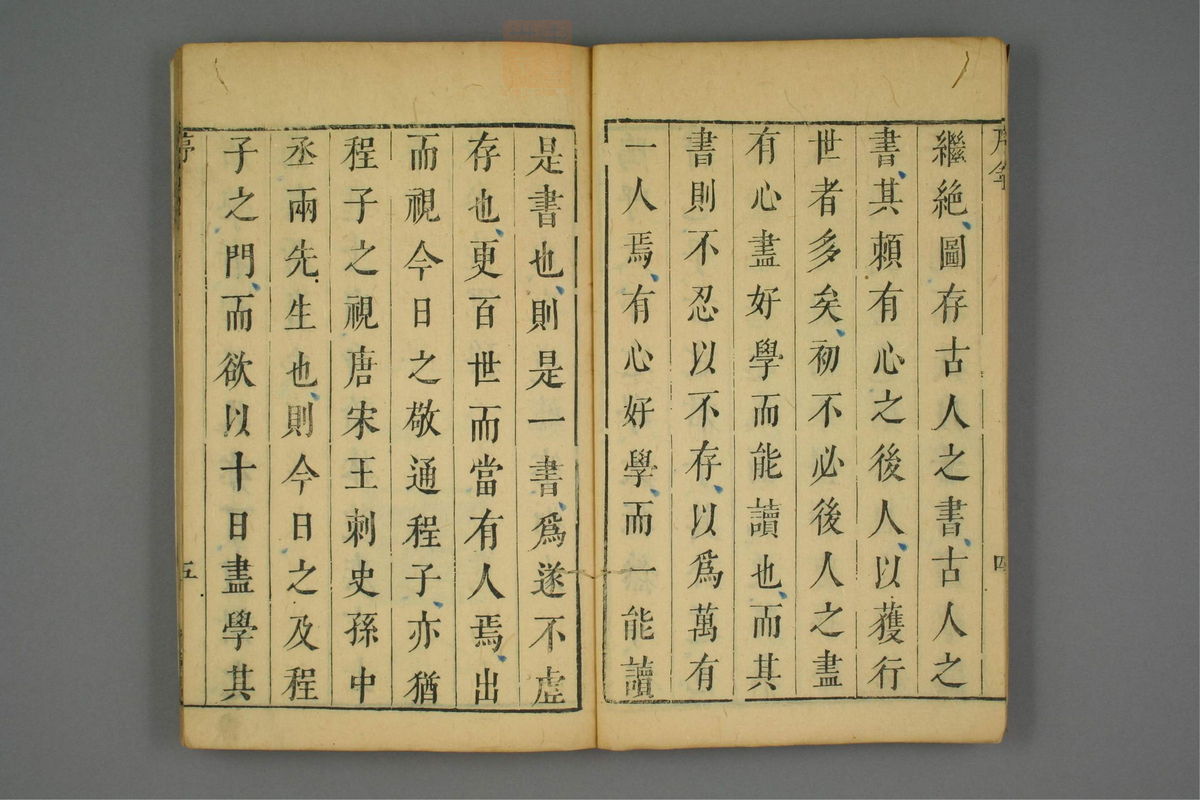 序
四
繼絶圖存古人之書古人之
書其頼有心之後人以獲行
世者多矣初不必後人之盡
有心盡好學而能讀也而其
書則不忍以不存以爲萬有
一人焉有心好學而一能讀
是書也則是一書爲遂不虛
存也更百世而當有人焉出
而視今日之敬通程子亦猶
程子之視唐宋王刺史孫中
丞兩先生也則今日之及程
子之門而欲以十日盡學其
序
五